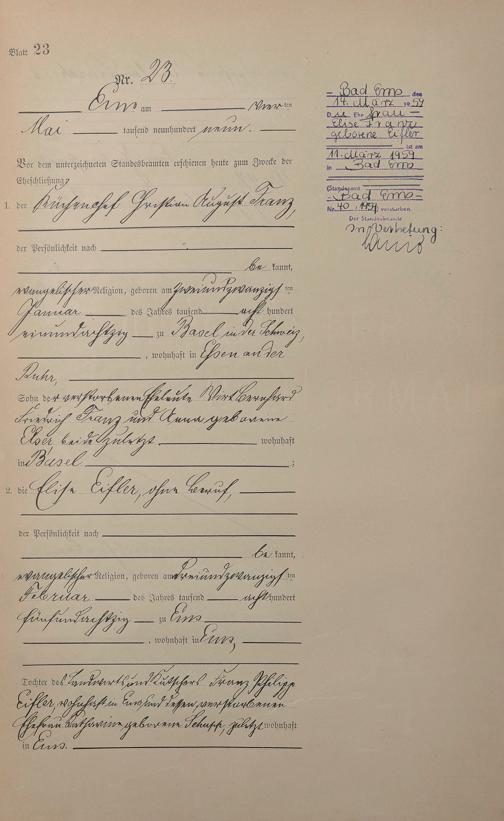 Blatt 23
Nr. 23.
Ems am vierten
Mai tausend neunhundert neun.
Vor dem unterzeichneten Standesbeamten erschienen heute zum Zwecke der
Eheschließung:
1. der Küchenchef Christian August Franz,
der Persönlichkeit nach
be kannt,
evangelischer Religion, geboren am zweiundzwanzigsten
Januar des Jahres tausend acht hundert
einundachtzig zu Basel in der Schweiz,
, wohnhaft in Essen an der
Ruhr,
Sohn der verstorbenen Eheleute Wirt Bernhard
Friedrich Franz und Anna geborene
Elser beide zuletzt wohnhaft
in Basel ;
2. die Elise Eifler, ohne Beruf,
der Persönlichkeit nach
be kannt,
evangelischer Religion, geboren am dreiundzwanzigsten
Februar des Jahres tausend acht hundert
fünfundachtzig zu Ems
, wohnhaft in Ems,
Tochter des Landwirts und Kutschers Franz Philipp
Eifler, wohnhaft in Ems und dessen verstorbenen
Ehefrau Katharine geborene Schupp, zuletzt wohnhaft
in Ems.
Bad Ems den
14. März 1959
Die Ehefrau
Elise Franz
geborene Eifler
ist am
11. März 1959
in Bad Ems
(Standesamt
Bad Ems
Nr. 40/1959) verstorben.
Der Standesbeamte
In Vertretung: